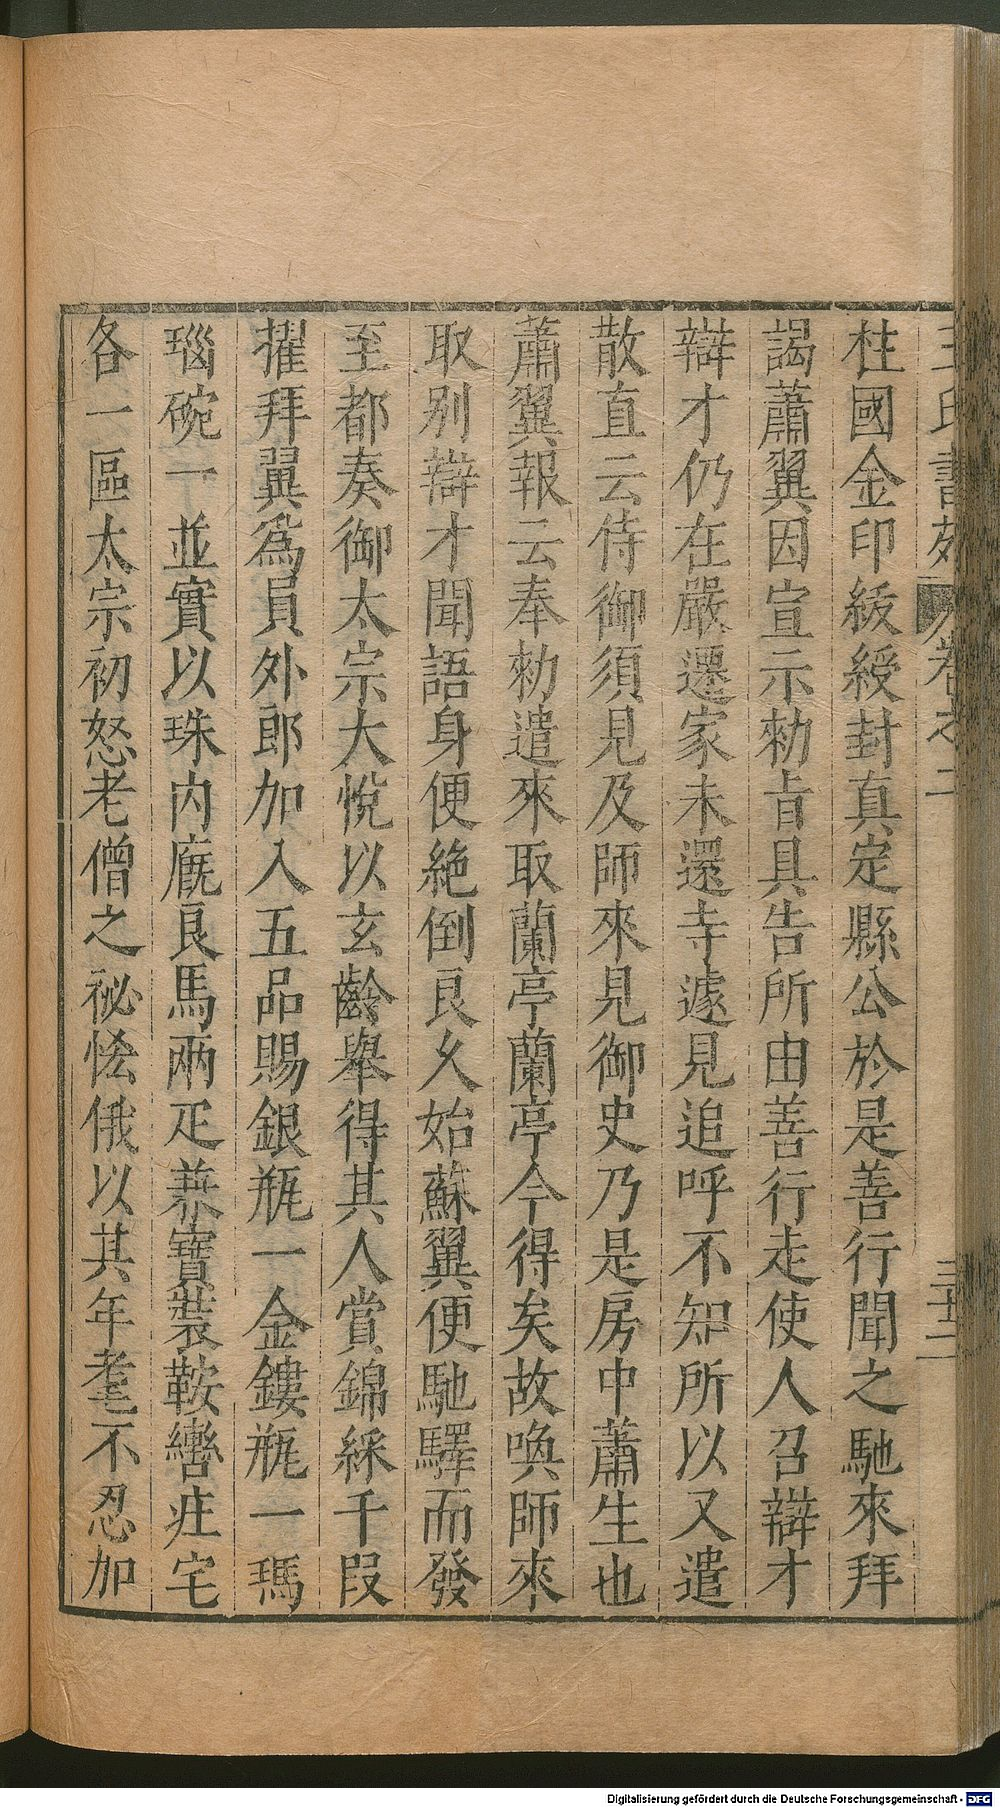 王氏書苑 卷之二 三十二
柱國金印綬綬封真定縣公於是善行聞之馳來拜
謁蕭翼因宣示勑旨具告所由善行走使人召辯才
辯才仍在嚴遷家未還寺遽見追呼不知所以又遣
散直云侍御須見及師來見御史乃是房中蕭生也
蕭翼報云奉勑遣來取蘭亭蘭亭今得矣故喚師來
取别辯才聞語身便絶倒良乆始蘇翼便馳驛而發
至都奏御太宗大悅以玄齡舉得其人賞錦綵千叚
擢拜翼爲員外郎加入五品賜銀瓶一金鏤瓶一瑪
瑙碗一並實以珠内廐良馬兩疋兼寶裝鞍轡庄宅
各一區太宗初怒老僧之祕恡俄以其年耄不忍加
Digitalisierung gefördert durch die Deutsche Forschungsgemeinschaft - DFG